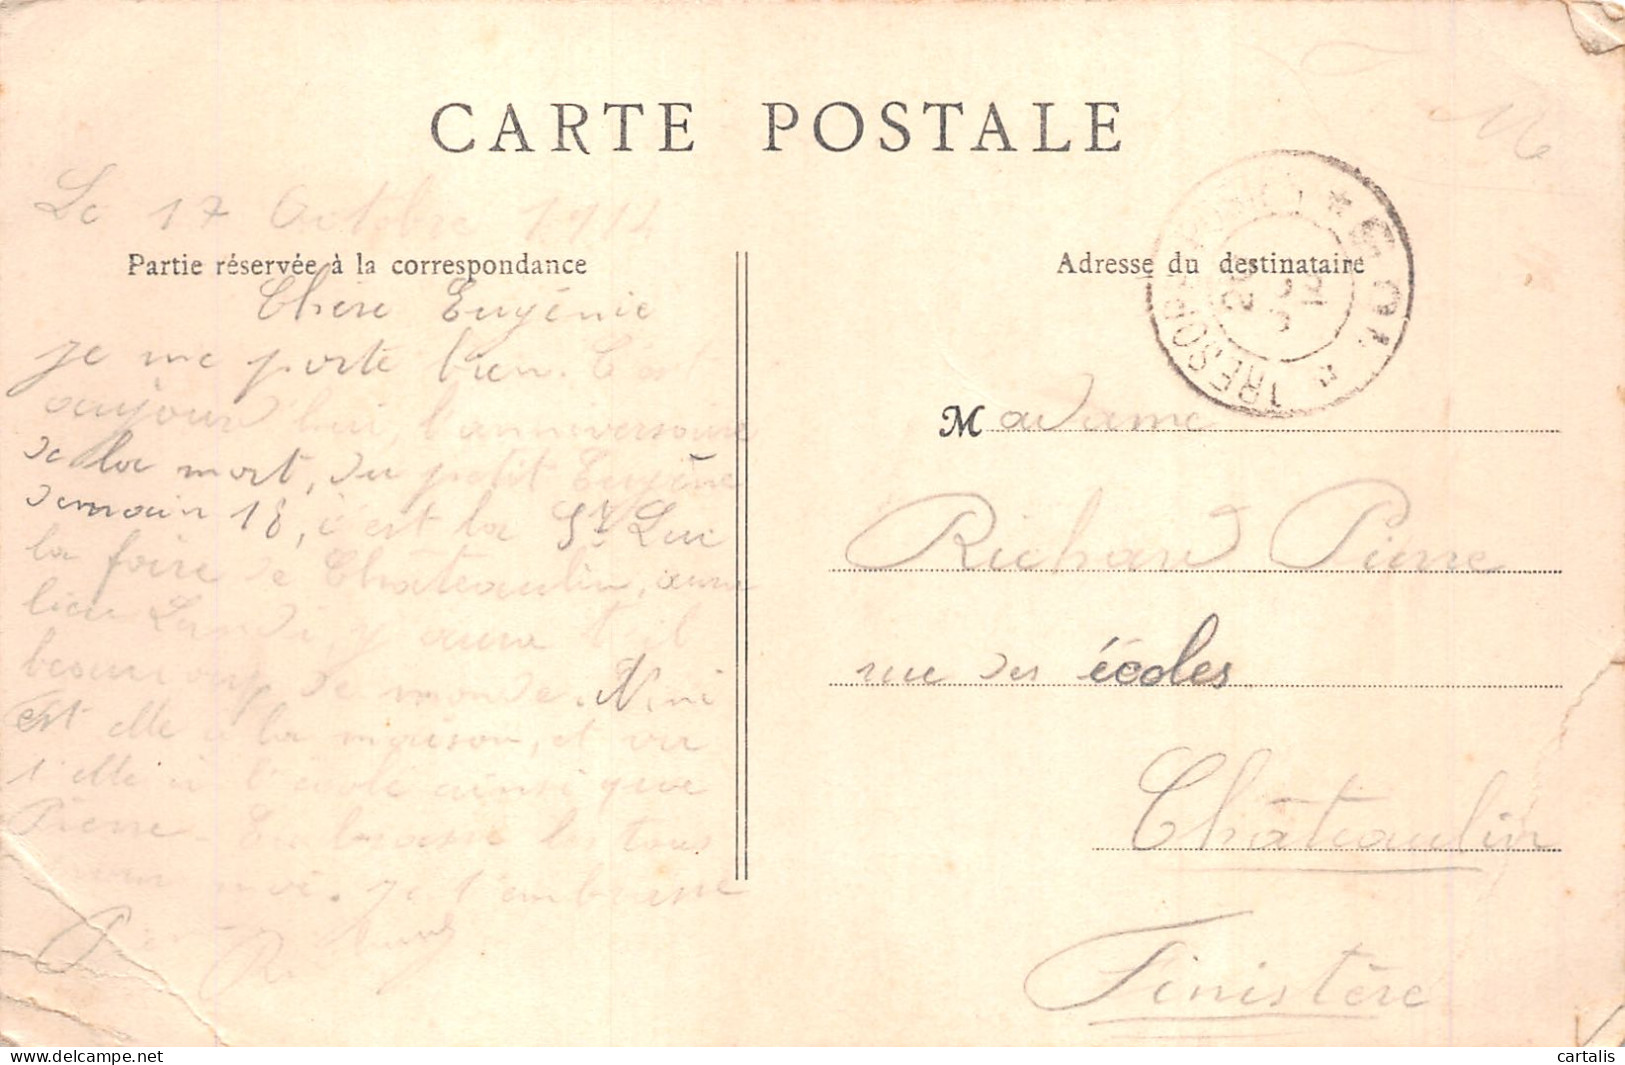 CARTE POSTALE
Le 17 Octobre 1914
Partie réservée à la correspondance
Chère Eugénie
je me porte bien. C'est
aujourd'hui, l'anniversaire
de la mort, du petit Eugène
demain 18, c'est la St Luc
la foire de Châteaulin, aura
lieu Lundi, y aura t il
beaucoup de monde. Nini
est elle à la maison, et va
t'elle à l'école ainsi que
Pierre. Embrasse les tous
pour moi. Je t'embrasse
Pierre Richard
Adresse du destinataire
TRESOR
20
Madame
Richard Pierre
rue des écoles
Châteaulin
Finistère
cartalis